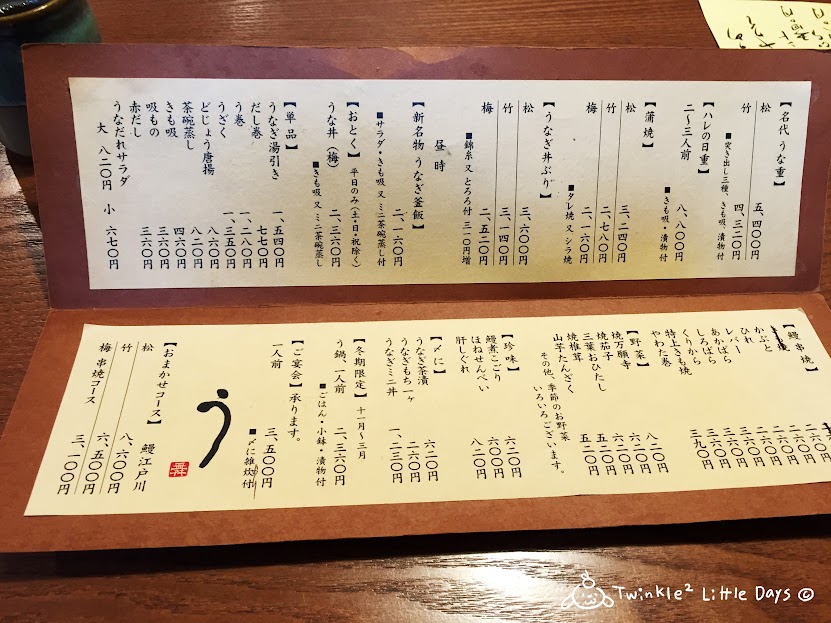 【名代 うな重】
松 五、四〇〇円
竹 四、三二〇円
■突き出し三種、きも吸、漬物付
【ハレの日重】
二〜三人前 八、八〇〇円
■きも吸・漬物付
【蒲焼】
松 三、二四〇円
竹 二、七八〇円
梅 二、一六〇円
■タレ焼 又 シラ焼
【うなぎ丼ぶり】
松 三、六〇〇円
竹 三、一四〇円
梅 二、五二〇円
■錦糸 又 とろろ付 三一〇円増
【新名物 うなぎ釜飯】
昼 時 二、一六〇円
■サラダ・きも吸 又 ミニ茶碗蒸し付
【おとく】 平日のみ(土・日・祝除く)
うな丼(梅) 二、三六〇円
■きも吸 又 ミニ茶碗蒸し
【単品】
うなぎ湯引き 一、五四〇円
だし巻 七七〇円
う巻 一、二八〇円
うざく 一、三五〇円
どじょう唐揚 八六〇円
茶碗蒸し 八二〇円
きも吸 四六〇円
吸もの 三六〇円
赤だし 三六〇円
うなだれサラダ
大 八二〇円 小 六七〇円
【鰻串焼】
かぶと
ひれ
レバー
あかばら
しろばら
くりから
特上きも焼
やわた巻 三九〇円
【野菜】
焼万願寺 八二〇円
焼茄子 六二〇円
三葉おひたし 六二〇円
焼椎茸 五二〇円
山芋たんざく 五二〇円
その他、季節のお野菜
いろいろございます。
【珍味】
鰻煮こごり 六二〇円
ほねせんべい 六〇〇円
肝しぐれ 八二〇円
【〆に】
うなぎ茶漬 六二〇円
うなぎもち一ヶ 二六〇円
うなぎミニ丼 一、二三〇円
【冬期限定】 十一月〜三月
う鍋、一人前 二、三六〇円
■ごはん・小鉢・漬物付
【ご宴会】承ります。
一人前 三、五〇〇円
■〆に雑炊付
う
【おまかせコース】 鰻江戸川
松 八、六〇〇円
竹 六、五〇〇円
梅 串焼コース 三、一〇〇円
Twinkle² Little Days ©